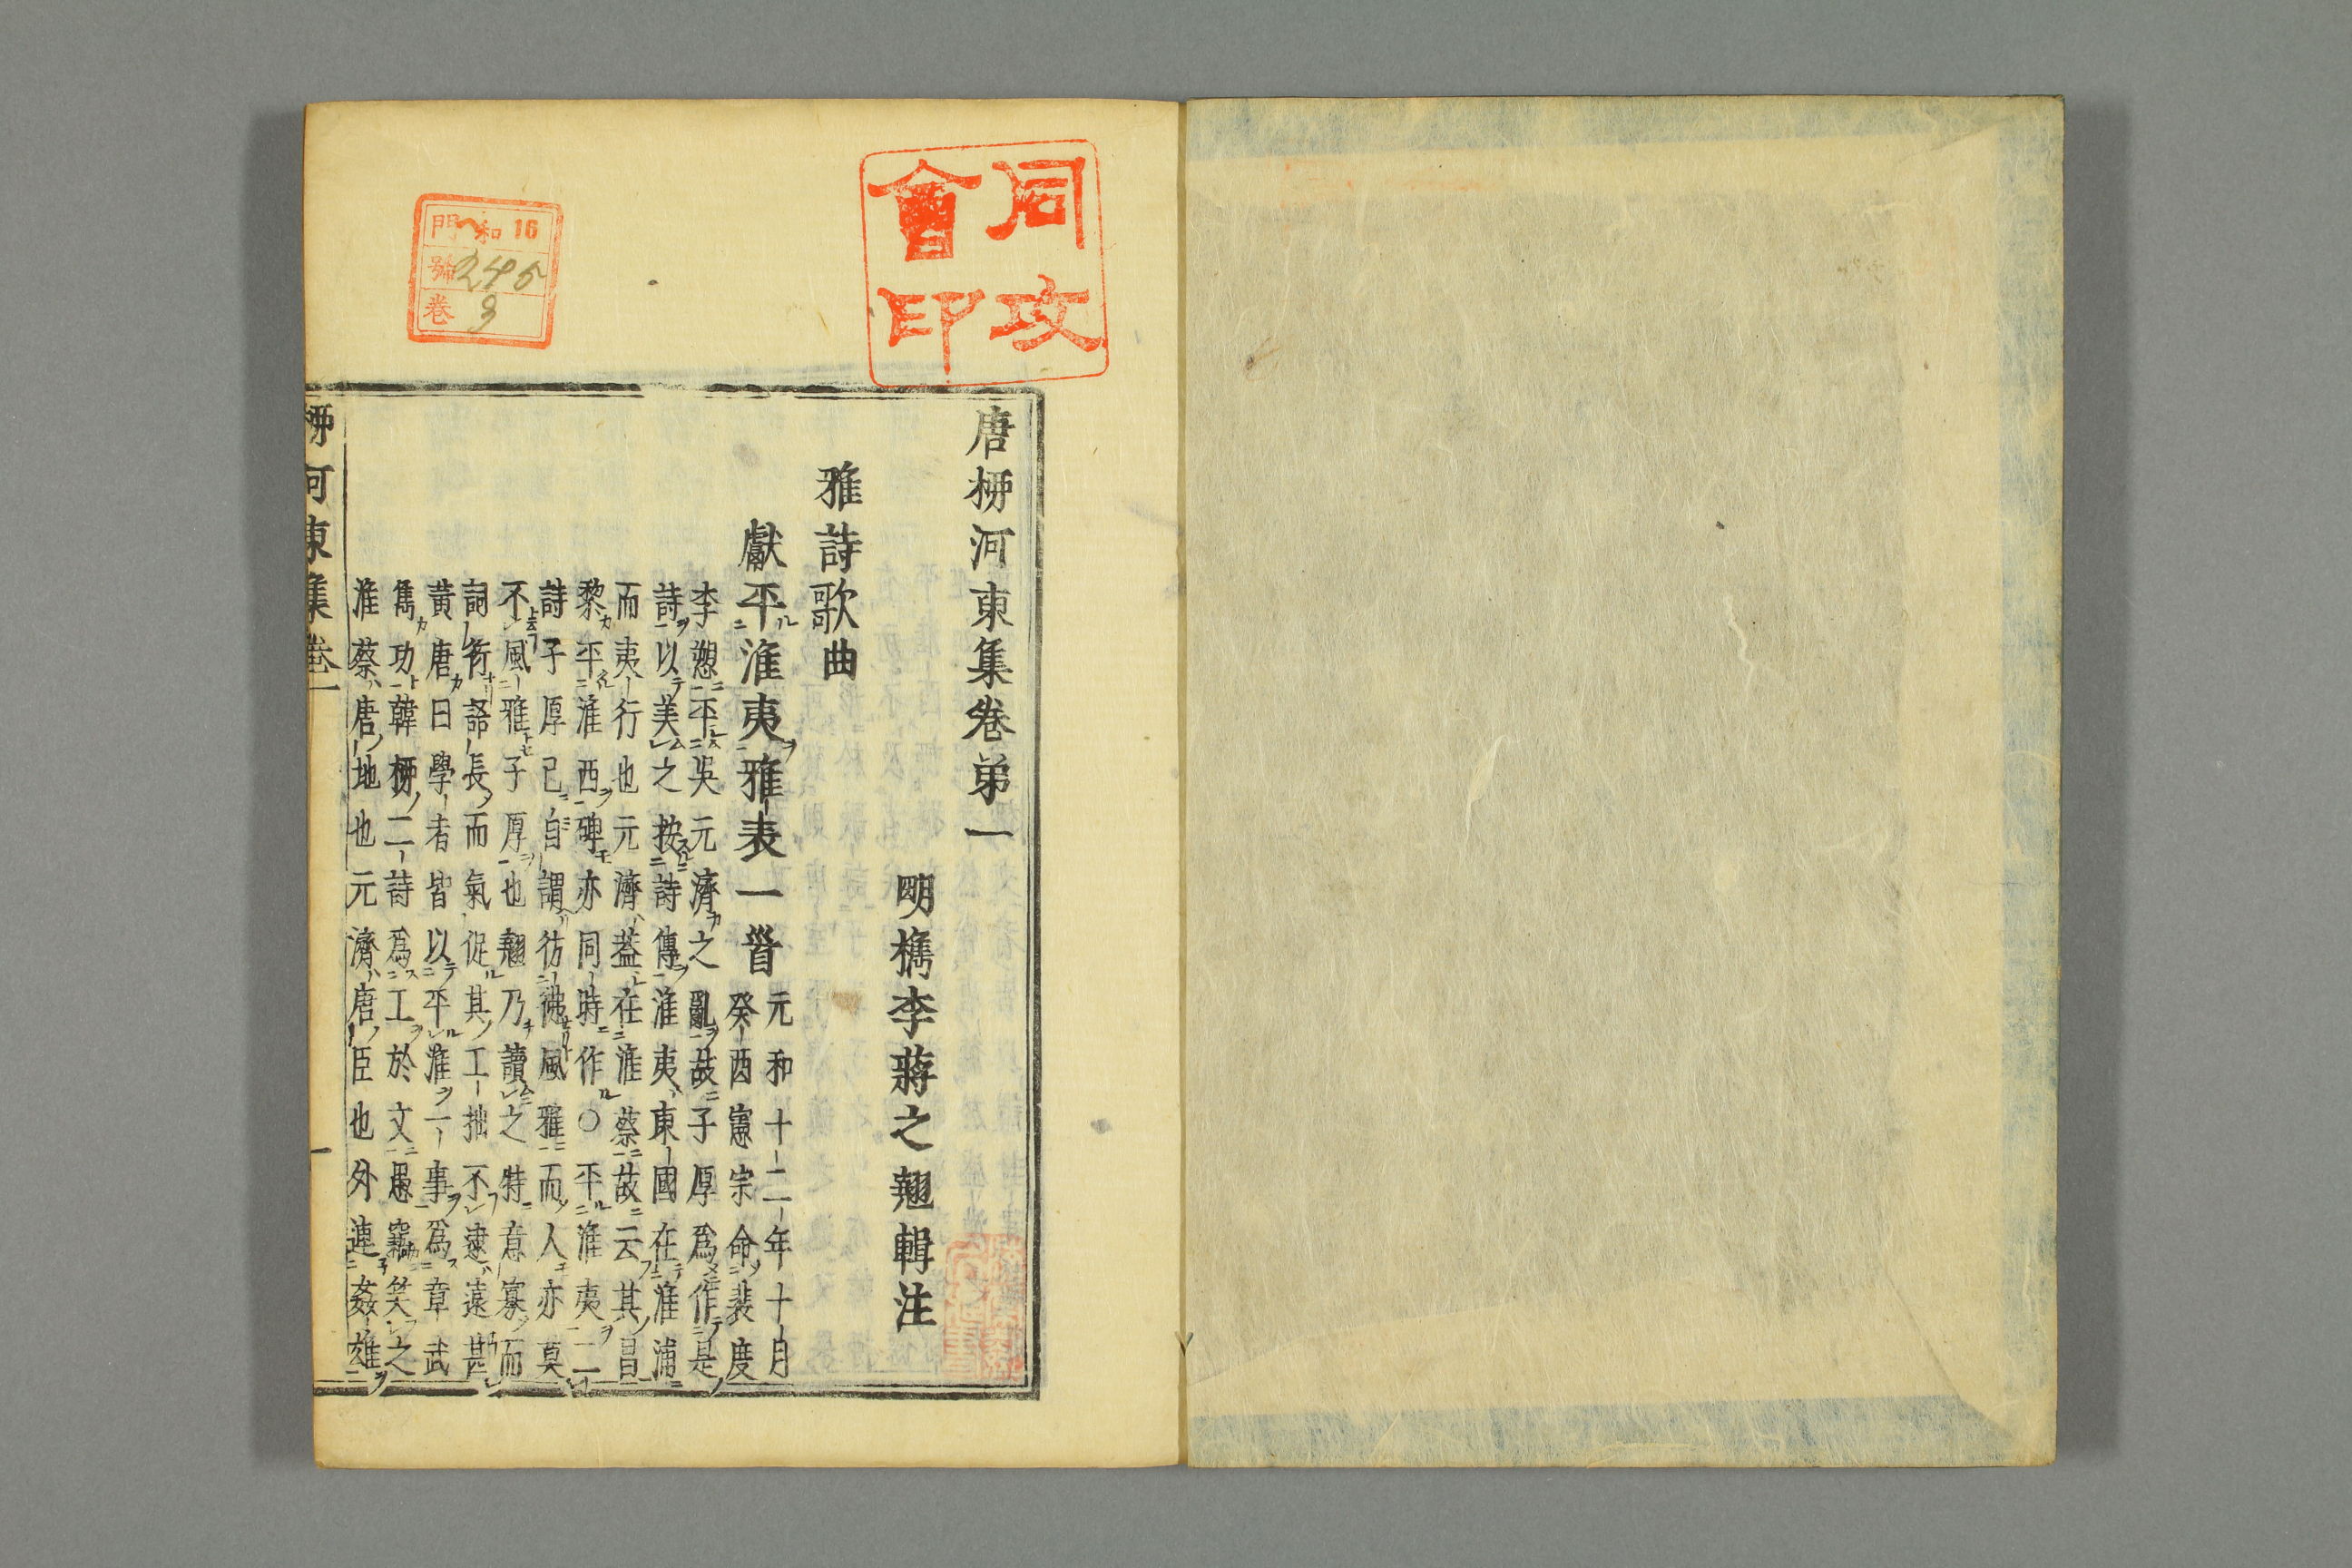 同攻
會印
和16
門
號245
卷3
唐柳河東集卷第一
明檇李蔣之翹輯注
雅詩歌曲
獻平淮夷雅表一首
元和十二年十月
癸酉憲宗命裴度
李愬平吳元濟之亂故子厚爲作是
詩以美之按詩傳淮夷東國在淮浦
而夷行也元濟蓋在淮蔡故云其昌
黎平淮西碑亦同時作○平淮夷二
詩子厚已自謂彷彿風雅而人亦莫
不風雅子厚也翹乃讀之特意寡而
詞衒語長而氣促其工拙不逮遠甚
黃唐曰學者皆以平淮一事爲章武
雋功韓柳二詩爲工於文愚竊笑之
淮蔡唐地也元濟唐臣也外連姦雄
柳河東集卷一
一